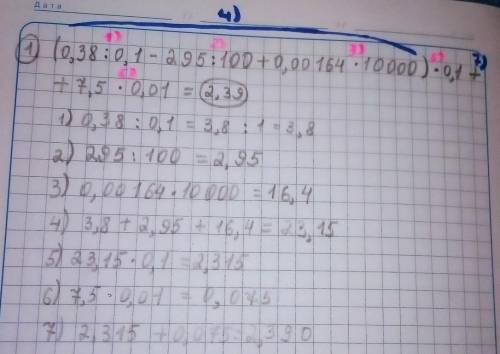 Дата
4)
1) 2) 3) 5) 7)
1) (0,38 : 0,1 - 295 : 100 + 0,00164 · 10000) · 0,1 +
6)
+ 7,5 · 0,01 = 2,39
1) 0,38 : 0,1 = 3,8 : 1 = 3,8
2) 295 : 100 = 2,95
3) 0,00164 · 10000 = 16,4
4) 3,8 + 2,95 + 16,4 = 23,15
5) 23,15 · 0,1 = 2,315
6) 7,5 · 0,01 = 0,075
7) 2,315 + 0,075 = 2,390